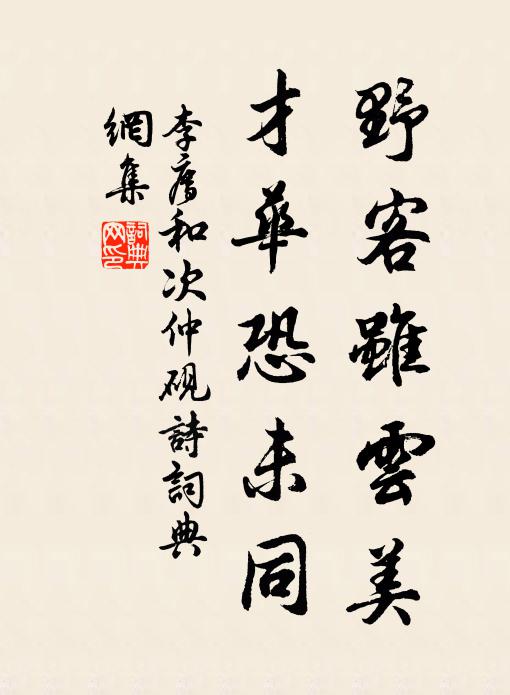 野客雖雲美
才華恐未同
李廌和次仲硯詩詞典
網集
詞典
网印